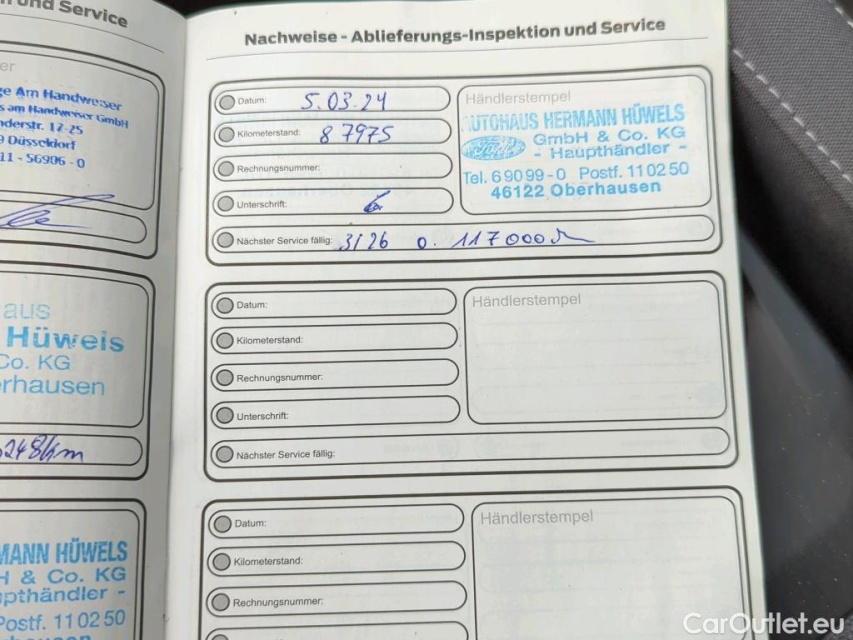 und Service
ge Am Handweiser
s am Handweiser GmbH
nderstr. 17-25
Düsseldorf
11 - 56906 - 0
aus
Hüweis
Co. KG
rhausen
248km
MANN HÜWELS
H & Co. KG
pthändler -
Postf. 11 02 50
Nachweise - Ablieferungs-Inspektion und Service
Datum: 5.03.24
Kilometerstand: 87975
Rechnungsnummer:
Unterschrift:
Nächster Service fällig: 3/26 o. 117000
Händlerstempel
AUTOHAUS HERMANN HÜWELS
Ford GmbH & Co. KG
- Haupthändler -
Tel. 6 90 99-0 Postf. 11 02 50
46122 Oberhausen
Datum:
Kilometerstand:
Rechnungsnummer:
Unterschrift:
Nächster Service fällig:
Händlerstempel
Datum:
Kilometerstand:
Rechnungsnummer:
Händlerstempel
CarOutlet.eu